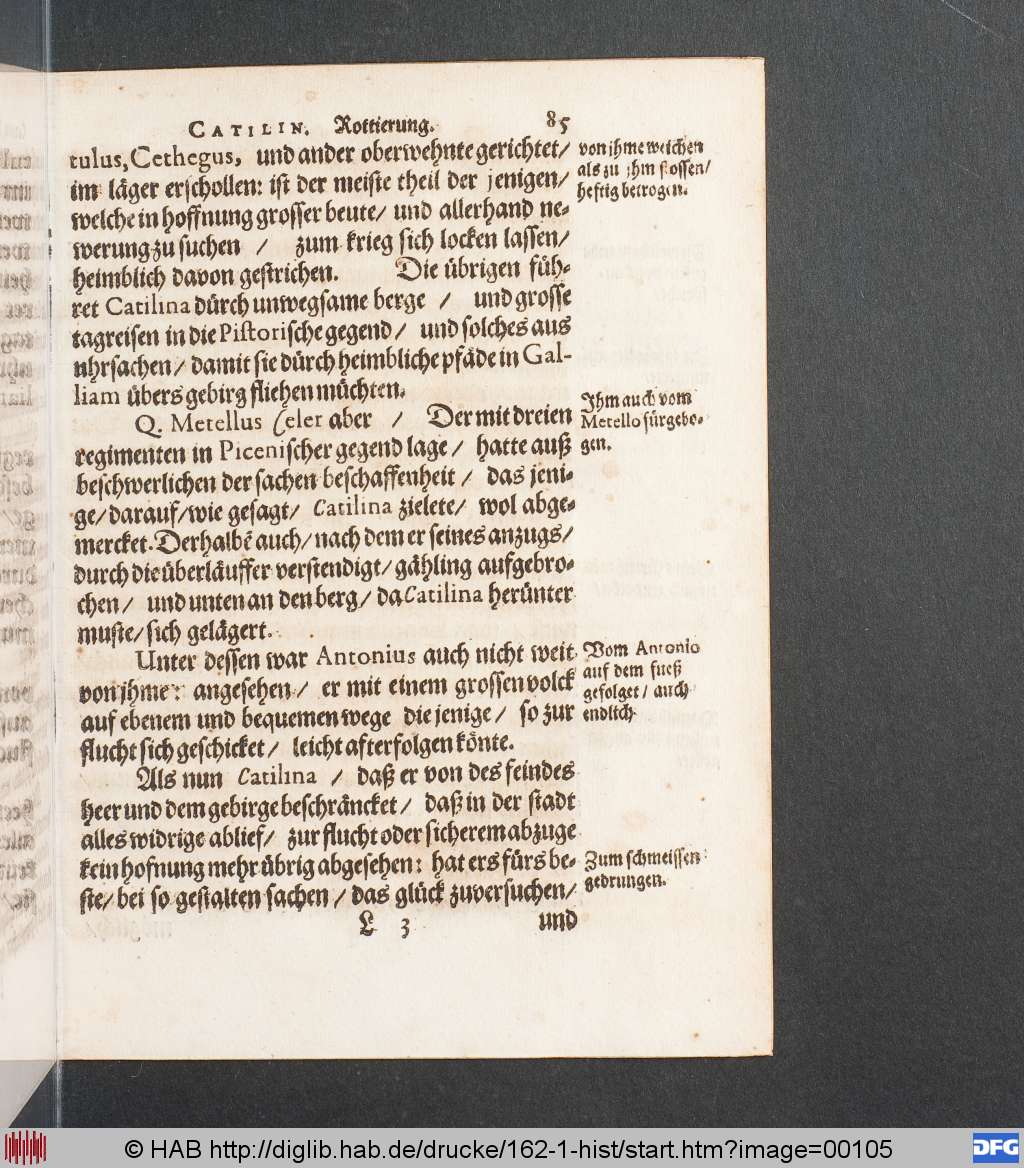 CATILIN. Rottierung. 85
tulus, Cethegus, und ander oberwehnte gerichtet/
im läger erschollen: ist der meiste theil der jenigen/
welche in hoffnung grosser beute/ und allerhand ne-
werung zu suchen / zum krieg sich locken lassen/
heimblich davon gestrichen. Die übrigen füh-
ret Catilina dürch unwegsame berge / und grosse
tagreisen in die Pistorische gegend/ und solches aus
uhrsachen/ damit sie dürch heimbliche pfäde in Gal-
liam übers gebirg fliehen müchten.
Q. Metellus Celer aber / Der mit dreien
regimenten in Picenischer gegend lage/ hatte auß
beschwerlichen der sachen beschaffenheit / das jeni-
ge/ darauf/ wie gesagt/ Catilina zielete/ wol abge-
mercket. Derhalbē auch/ nach dem er seines anzugs/
durch die überläuffer verstendigt/ gähling aufgebro-
chen/ und unten an den berg/ da Catilina herünter
muste/ sich gelägert.
Unter dessen war Antonius auch nicht weit
von jhme: angesehen/ er mit einem grossen volck
auf ebenem und bequemen wege die jenige/ so zur
flucht sich geschicket/ leicht afterfolgen könte.
Als nun Catilina / daß er von des feindes
heer und dem gebirge beschräncket/ daß in der stadt
alles widrige ablief/ zur flucht oder sicherem abzuge
kein hofnung mehr übrig abgesehen: hat ers fürs be-
ste/ bei so gestalten sachen/ das glück zuversuchen/
L 3 und
von jhme weichen
als zu jhm stossen/
heftig betrogen.
Jhm auch vom
Metello fürgebo-
gen.
Vom Antonio
auf dem fueß
gefolget/ auch
endlich
Zum schmeissen
gedrungen.
© HAB http://diglib.hab.de/drucke/162-1-hist/start.htm?image=00105
DFG